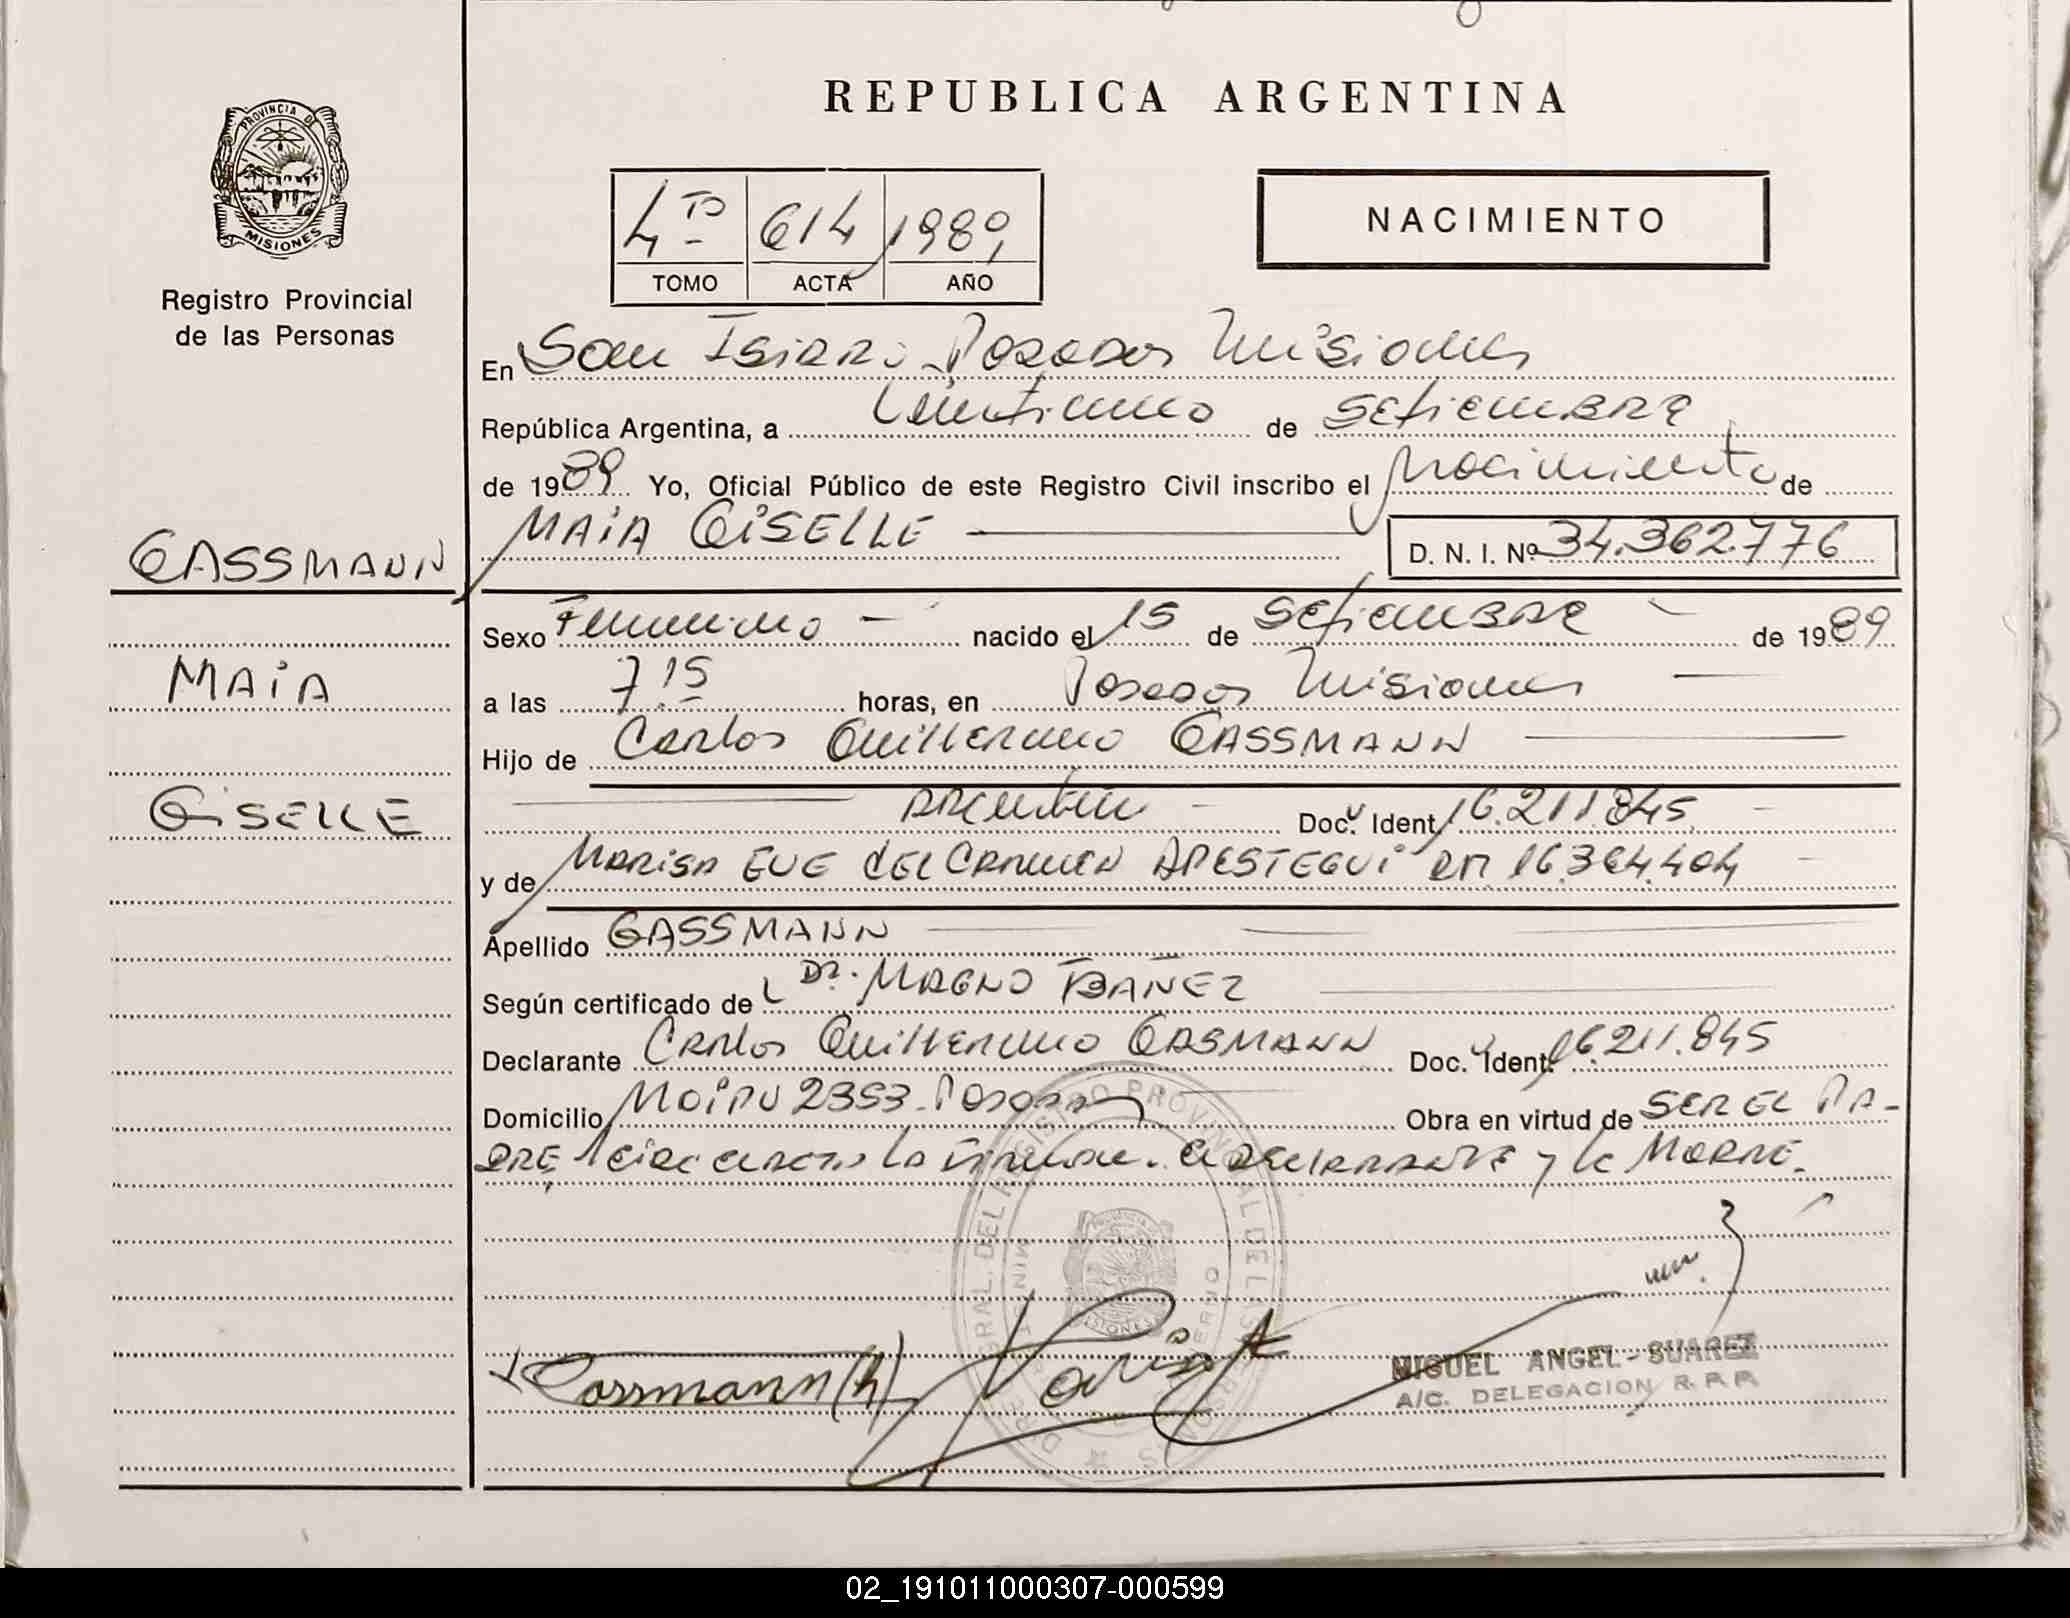 REPUBLICA ARGENTINA
PROVINCIA DE
MISIONES
Registro Provincial
de las Personas
4to 614 1989
TOMO ACTA AÑO
NACIMIENTO
En San Isidro Posadas Misiones
República Argentina, a Veintiuno de Setiembre
de 1989 Yo, Oficial Público de este Registro Civil inscribo el Nacimiento de
MAIA GISELLE
D. N. I. Nº 34.362.776
GASSMANN
MAIA
GISELLE
Sexo Femenino nacido el 15 de Setiembre de 1989
a las 7.15 horas, en Posadas Misiones
Hijo de Carlos Guillermo GASSMANN
Doc. Ident. 16.211.845
y de MARISA EVE del CARMEN APESTEGUI 16.364.404
Apellido GASSMANN
Según certificado de Dr. MAGNO IBAÑEZ
Declarante Carlos Guillermo GASMANN Doc. Ident. 16.211.845
Domicilio Maipu 2353 Posadas Obra en virtud de SER EL PA-
DRE, el declarante y la Madre.
Gassmann (h)
MIGUEL ANGEL SUAREZ
A/C. DELEGACION R. P. P.
02_191011000307-000599